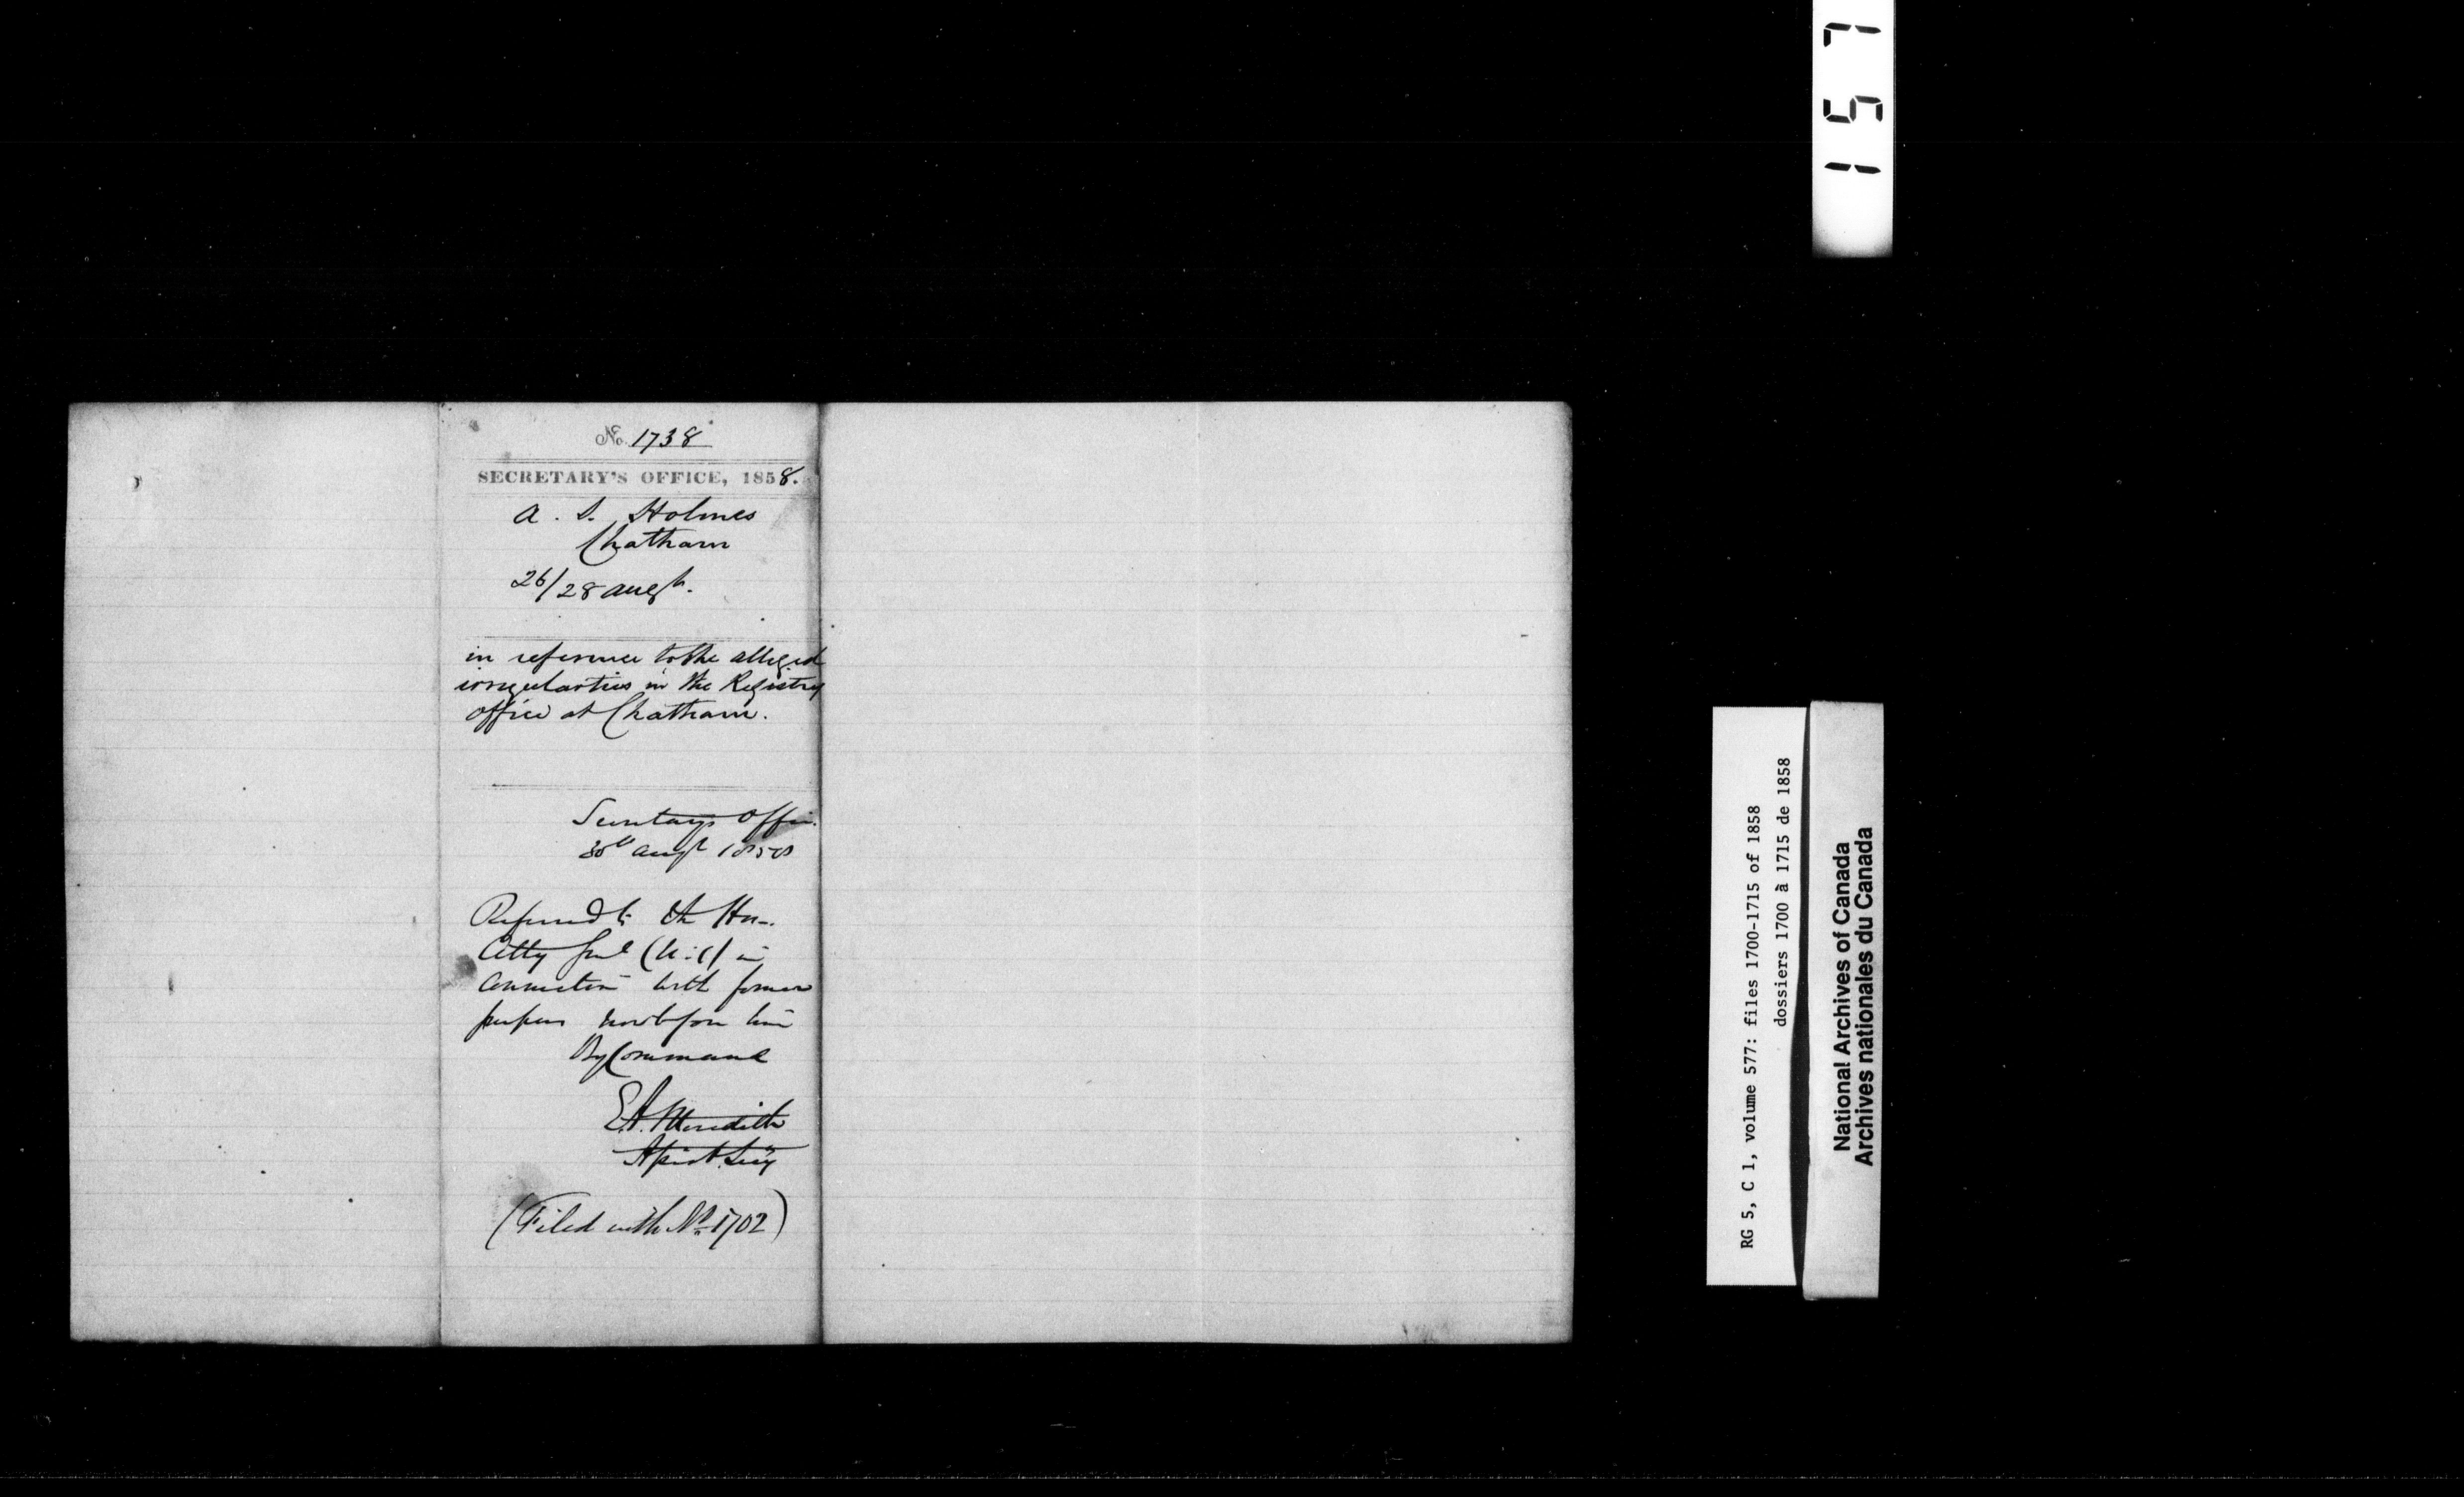 No. 1738
SECRETARY'S OFFICE, 1858.
A. S. Holmes
Chatham
26/28 Augt.
in reference to the alleged
irregularties in the Registry
Office at Chatham.
Secretarys Office
30th Augt 1858
Referred to the Hon.
Atty Genl (U.C) in
connection with former
papers now before him
By Command
E.A. Meredith
Assist. Secy
(Filed with No. 1702)
157
RG 5, C 1, volume 577: files 1700-1715 of 1858
dossiers 1700 à 1715 de 1858
National Archives of Canada
Archives nationales du Canada